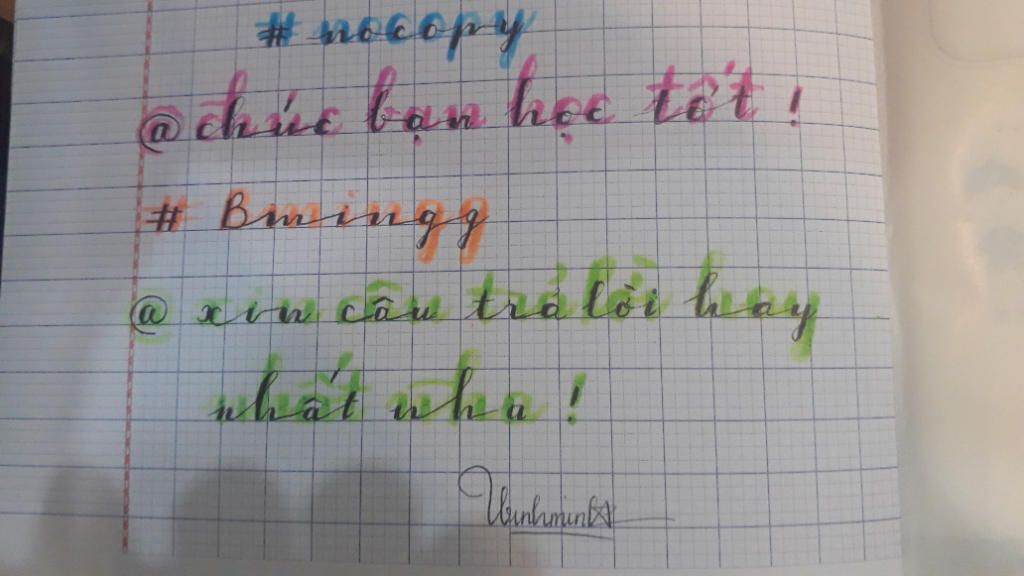 # nocopy
@ chúc bạn học tốt !
# Bmingg
@ xin câu trả lời hay
nhất nha !